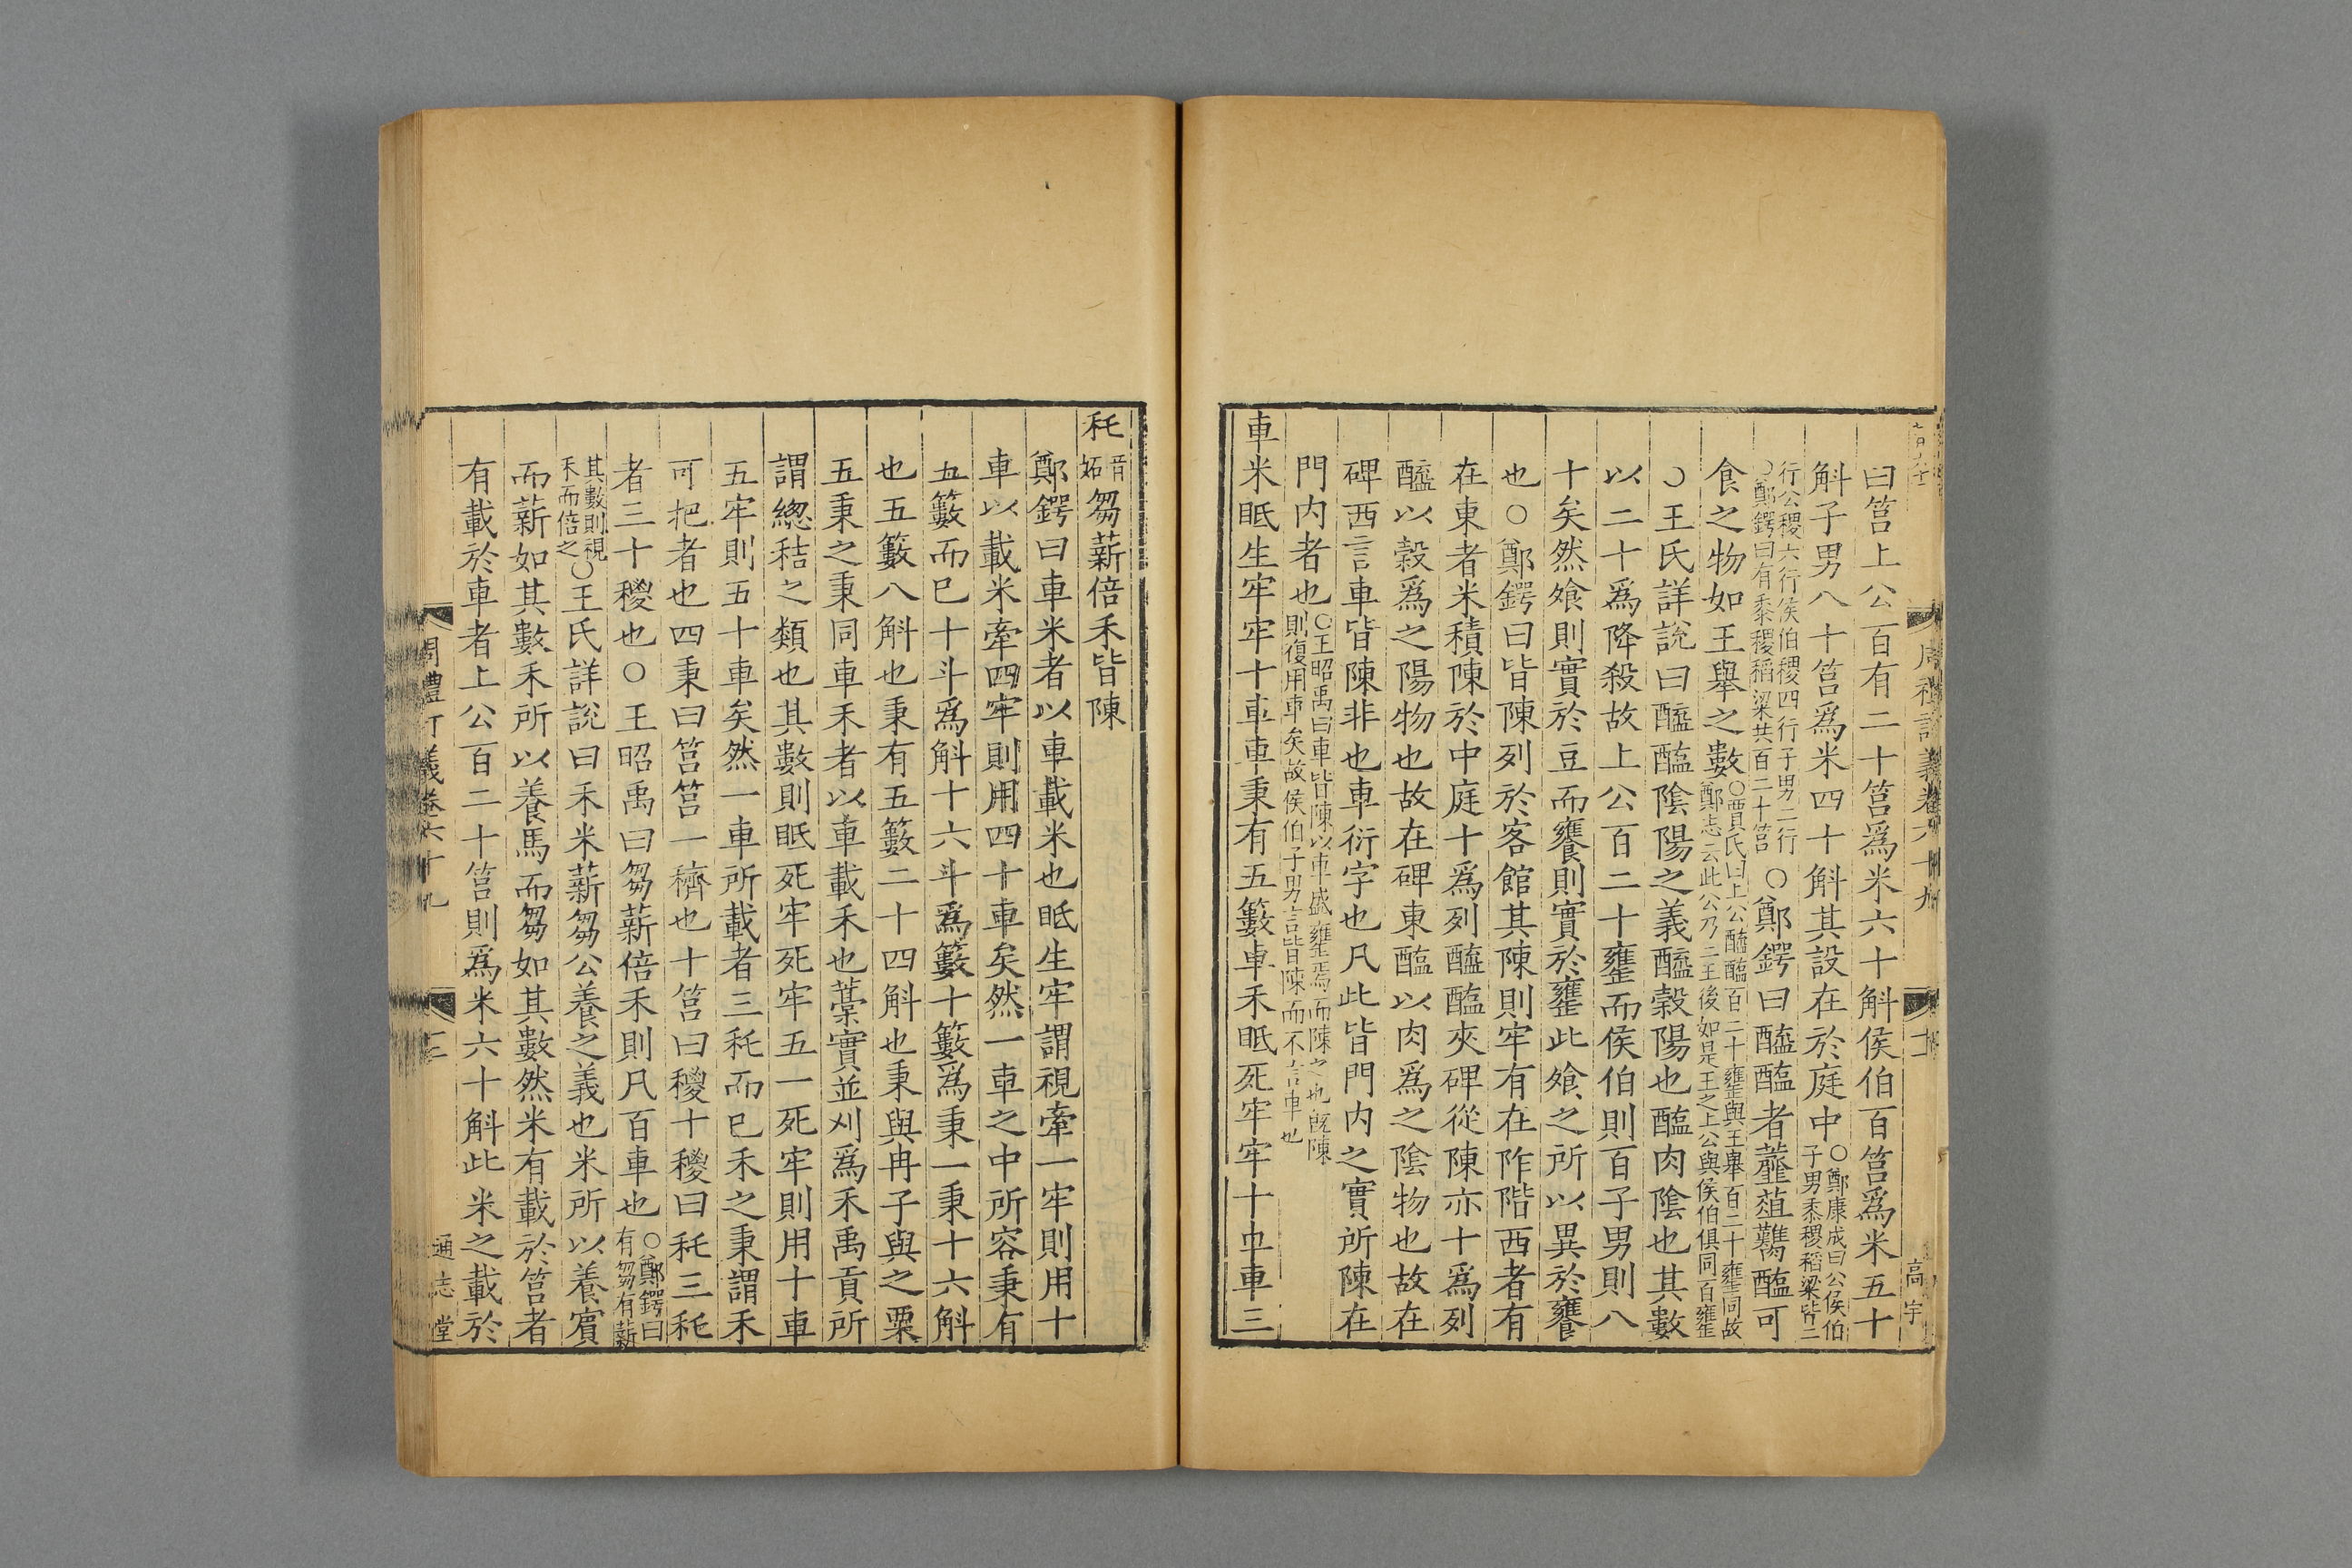 曰筥上公百有二十筥爲米六十斛侯伯百筥爲米五十
斛子男八十筥爲米四十斛其設在於庭中○鄭康成曰公侯伯子男黍稷稻粱皆二
行公稷六行侯伯稷四行子男二行○鄭鍔曰有黍稷稻粱共百二十筥○鄭鍔曰醯醢者虀菹䲴醢可
食之物如王舉之數○賈氏曰上公醯醢百二十罋與王舉百二十罋同故鄭志云此公乃二王後如是王之上公與侯伯俱同百罋
○王氏詳說曰醯醢陰陽之義醯穀陽也醢肉陰也其數
以二十爲降殺故上公百二十罋而侯伯則百子男則八
十矣然飧則實於豆而饔則實於罋此飧之所以異於饔
也○鄭鍔曰皆陳列於客館其陳則牢有在阼階西者有
在東者米積陳於中庭十爲列醯醢夾碑從陳亦十爲列
醯以穀爲之陽物也故在碑東醢以肉爲之陰物也故在
碑西言車皆陳非也車衍字也凡此皆門內之實所陳在
門內者也○王昭禹曰車皆陳以車盛罋焉而陳之也旣陳則復用車矣故侯伯子男言皆陳而不言車也
車米眡生牢牢十車車秉有五籔車禾眡死牢牢十車車三
秅音妬芻薪倍禾皆陳
鄭鍔曰車米者以車載米也眡生牢謂視牽一牢則用十
車以載米牽四牢則用四十車矣然一車之中所容秉有
五籔而已十斗爲斛十六斗爲籔十籔爲秉一秉十六斛
也五籔八斛也秉有五籔二十四斛也秉與冉子與之粟
五秉之秉同車禾者以車載禾也藁實並刈爲禾禹貢所
謂緫秸之類也其數則眡死牢死牢五一死牢則用十車
五牢則五十車矣然一車所載者三秅而已禾之秉謂禾
可把者也四秉曰筥筥一穧也十筥曰稯十稯曰秅三秅
者三十稯也○王昭禹曰芻薪倍禾則凡百車也○鄭鍔曰有芻有薪
其數則視禾而倍之○王氏詳說曰禾米薪芻公養之義也米所以養賓
而薪如其數禾所以養馬而芻如其數然米有載於筥者
有載於車者上公百二十筥則爲米六十斛此米之載於
周禮訂義卷六十九
通志堂
高宇